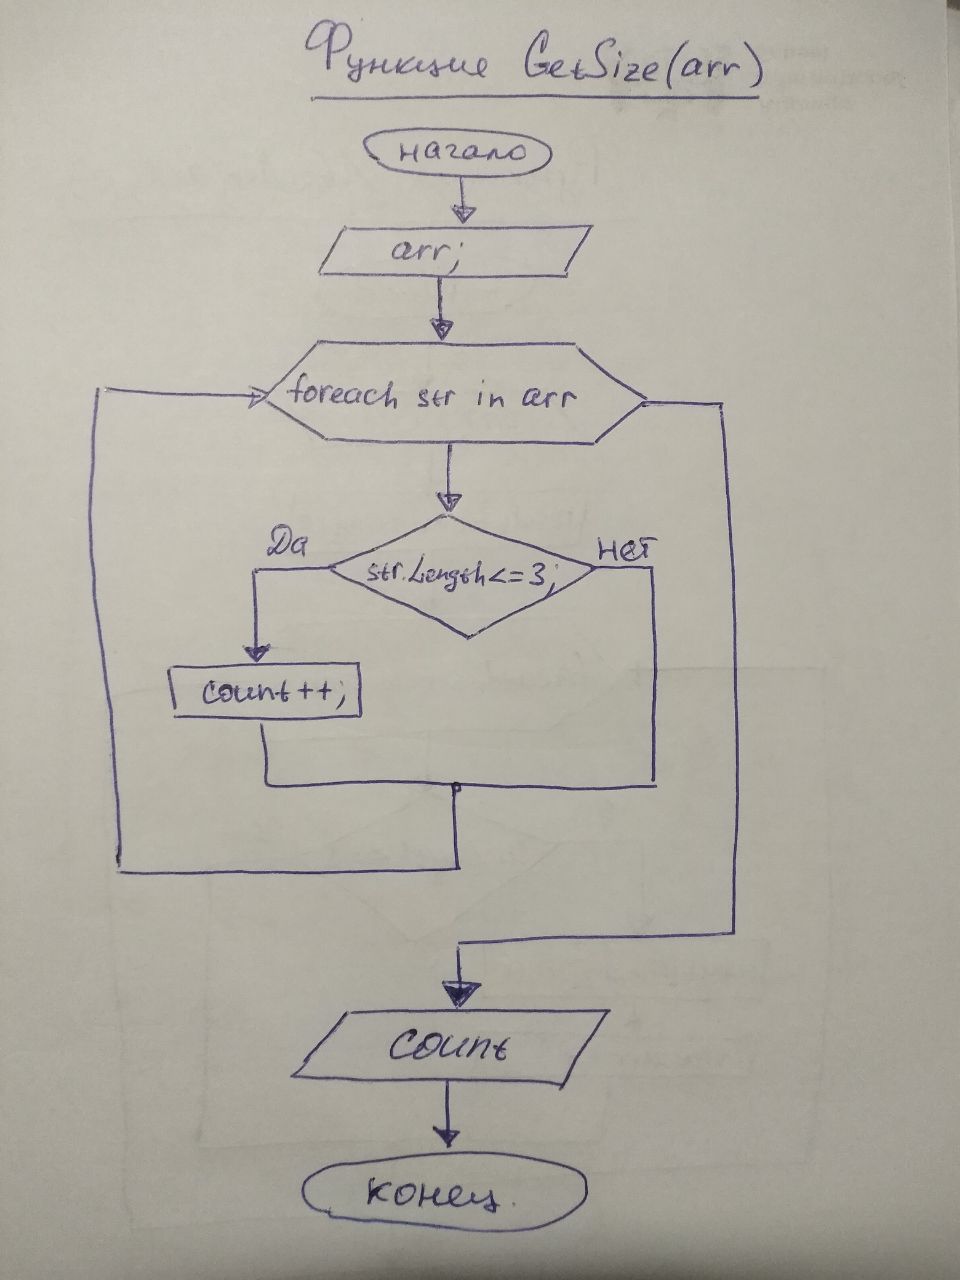 Функция GetSize(arr)
начало
arr;
foreach str in arr
Да
нет
str.Length<=3;
count++;
count
конец.